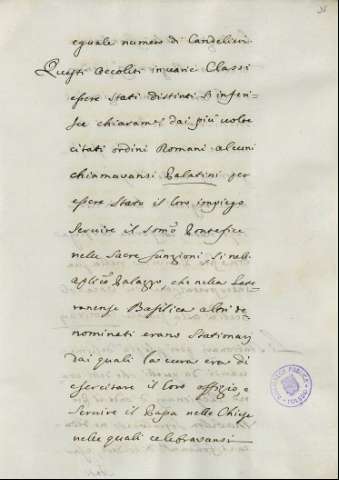 36
eguale numero di Candelieri.
Questi Accoliti in varie Classi
essere stati distinti si inferi-
sce chiaram.e dai più volte
citati ordini Romani. alcuni
chiamavansi Palatini per
essere stato il loro impiego
servire il som.o Pontefice
nelle Sacre funzioni sì nell'
aplico Palazzo, che nella Late-
ranense Basilica altri de-
nominati erano Stationarj
dai quali la cura era di
esercitare il loro offizio, e
servire il Papa nelle Chiese
nelle quali celebravansi
BIBLIOTECA PUBLICA
TOLEDO